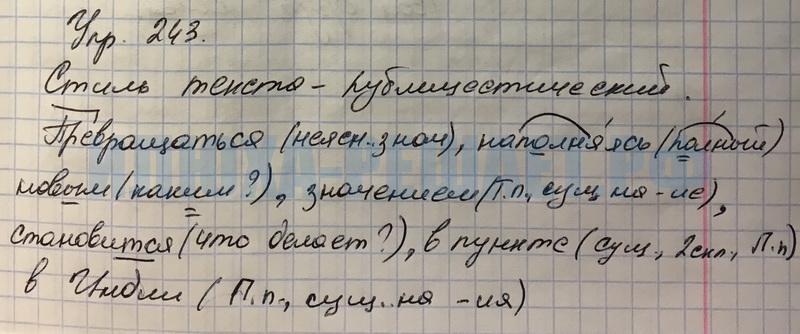 Упр. 243.
Стиль текста – публицистический.
Превращаться (неясн. знач), наполняясь (полный)
новым (каким?), значением (Т.п., сущ на -ие),
становится (что делает?), в пункте (сущ., 2скл., П.п)
в Индии (П.п., сущ. на -ия)